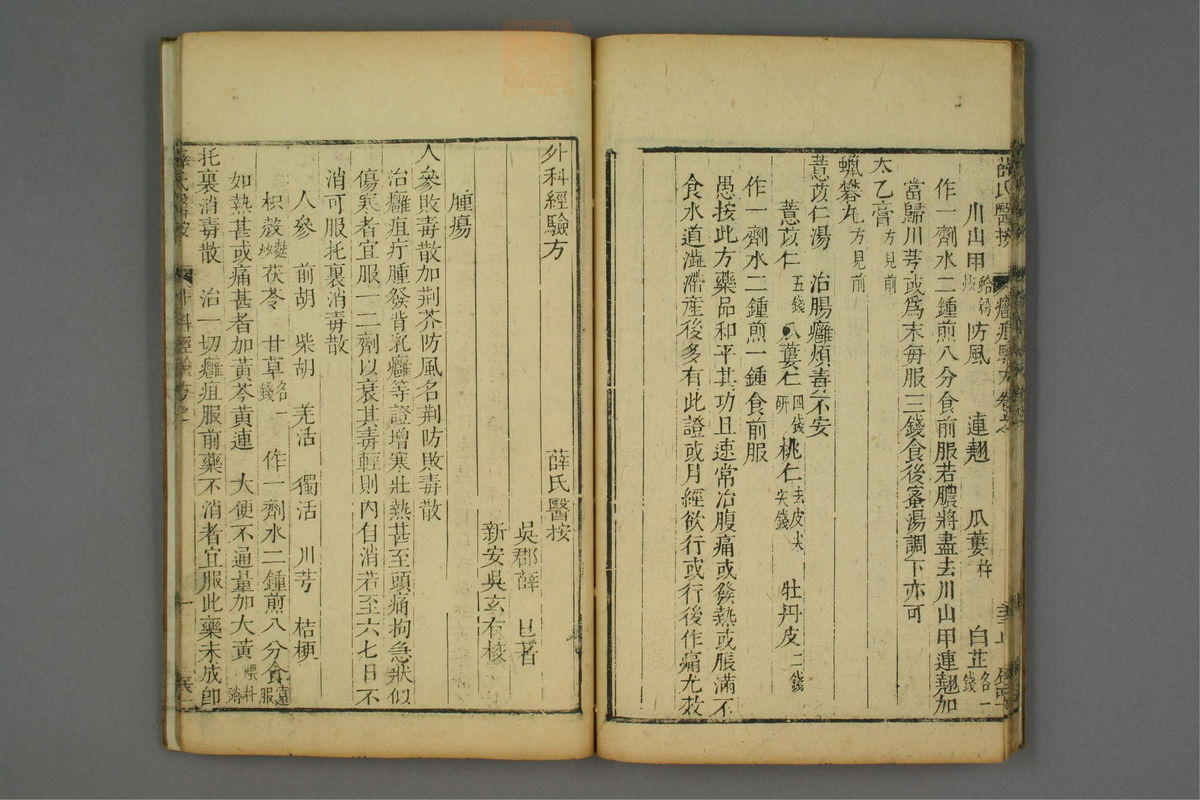 川山甲蛤粉炒 防風 連翹 瓜蔞杵 白芷各一錢
作一劑水二鍾煎八分食前服若膿將盡去川山甲連翹加
當歸川芎或爲末每服三錢食後蜜湯調下亦可
太乙膏方見前
蠟礬丸方見前
薏苡仁湯 治腸癰煩毒不安
薏苡仁五錢 瓜蔞仁四錢研 桃仁去皮尖 牡丹皮二錢
作一劑水二鍾煎一鍾食前服
愚按此方藥品和平其功且速常治腹痛或發熱或脹滿不
食水道澁滯產後多有此證或月經欲行或行後作痛尤效
外科經驗方 薛氏醫按
吳郡薛 己著
新安吳玄有校
腫瘍
人參敗毒散加荆芥防風名荆防敗毒散
治癰疽疔腫發背乳癰等證增寒壯熱甚至頭痛拘急狀似
傷寒者宜服一二劑以衰其毒輕則內自消若至六七日不
消可服托裏消毒散
人參 前胡 柴胡 羌活 獨活 川芎 桔梗
枳殼麩炒 茯苓 甘草各一錢 作一劑水二鍾煎八分食遠服
如熱甚或痛甚者加黃芩黃連 大便不通量加大黃
托裏消毒散 治一切癰疽服前藥不消者宜服此藥未成卽
薛氏醫按